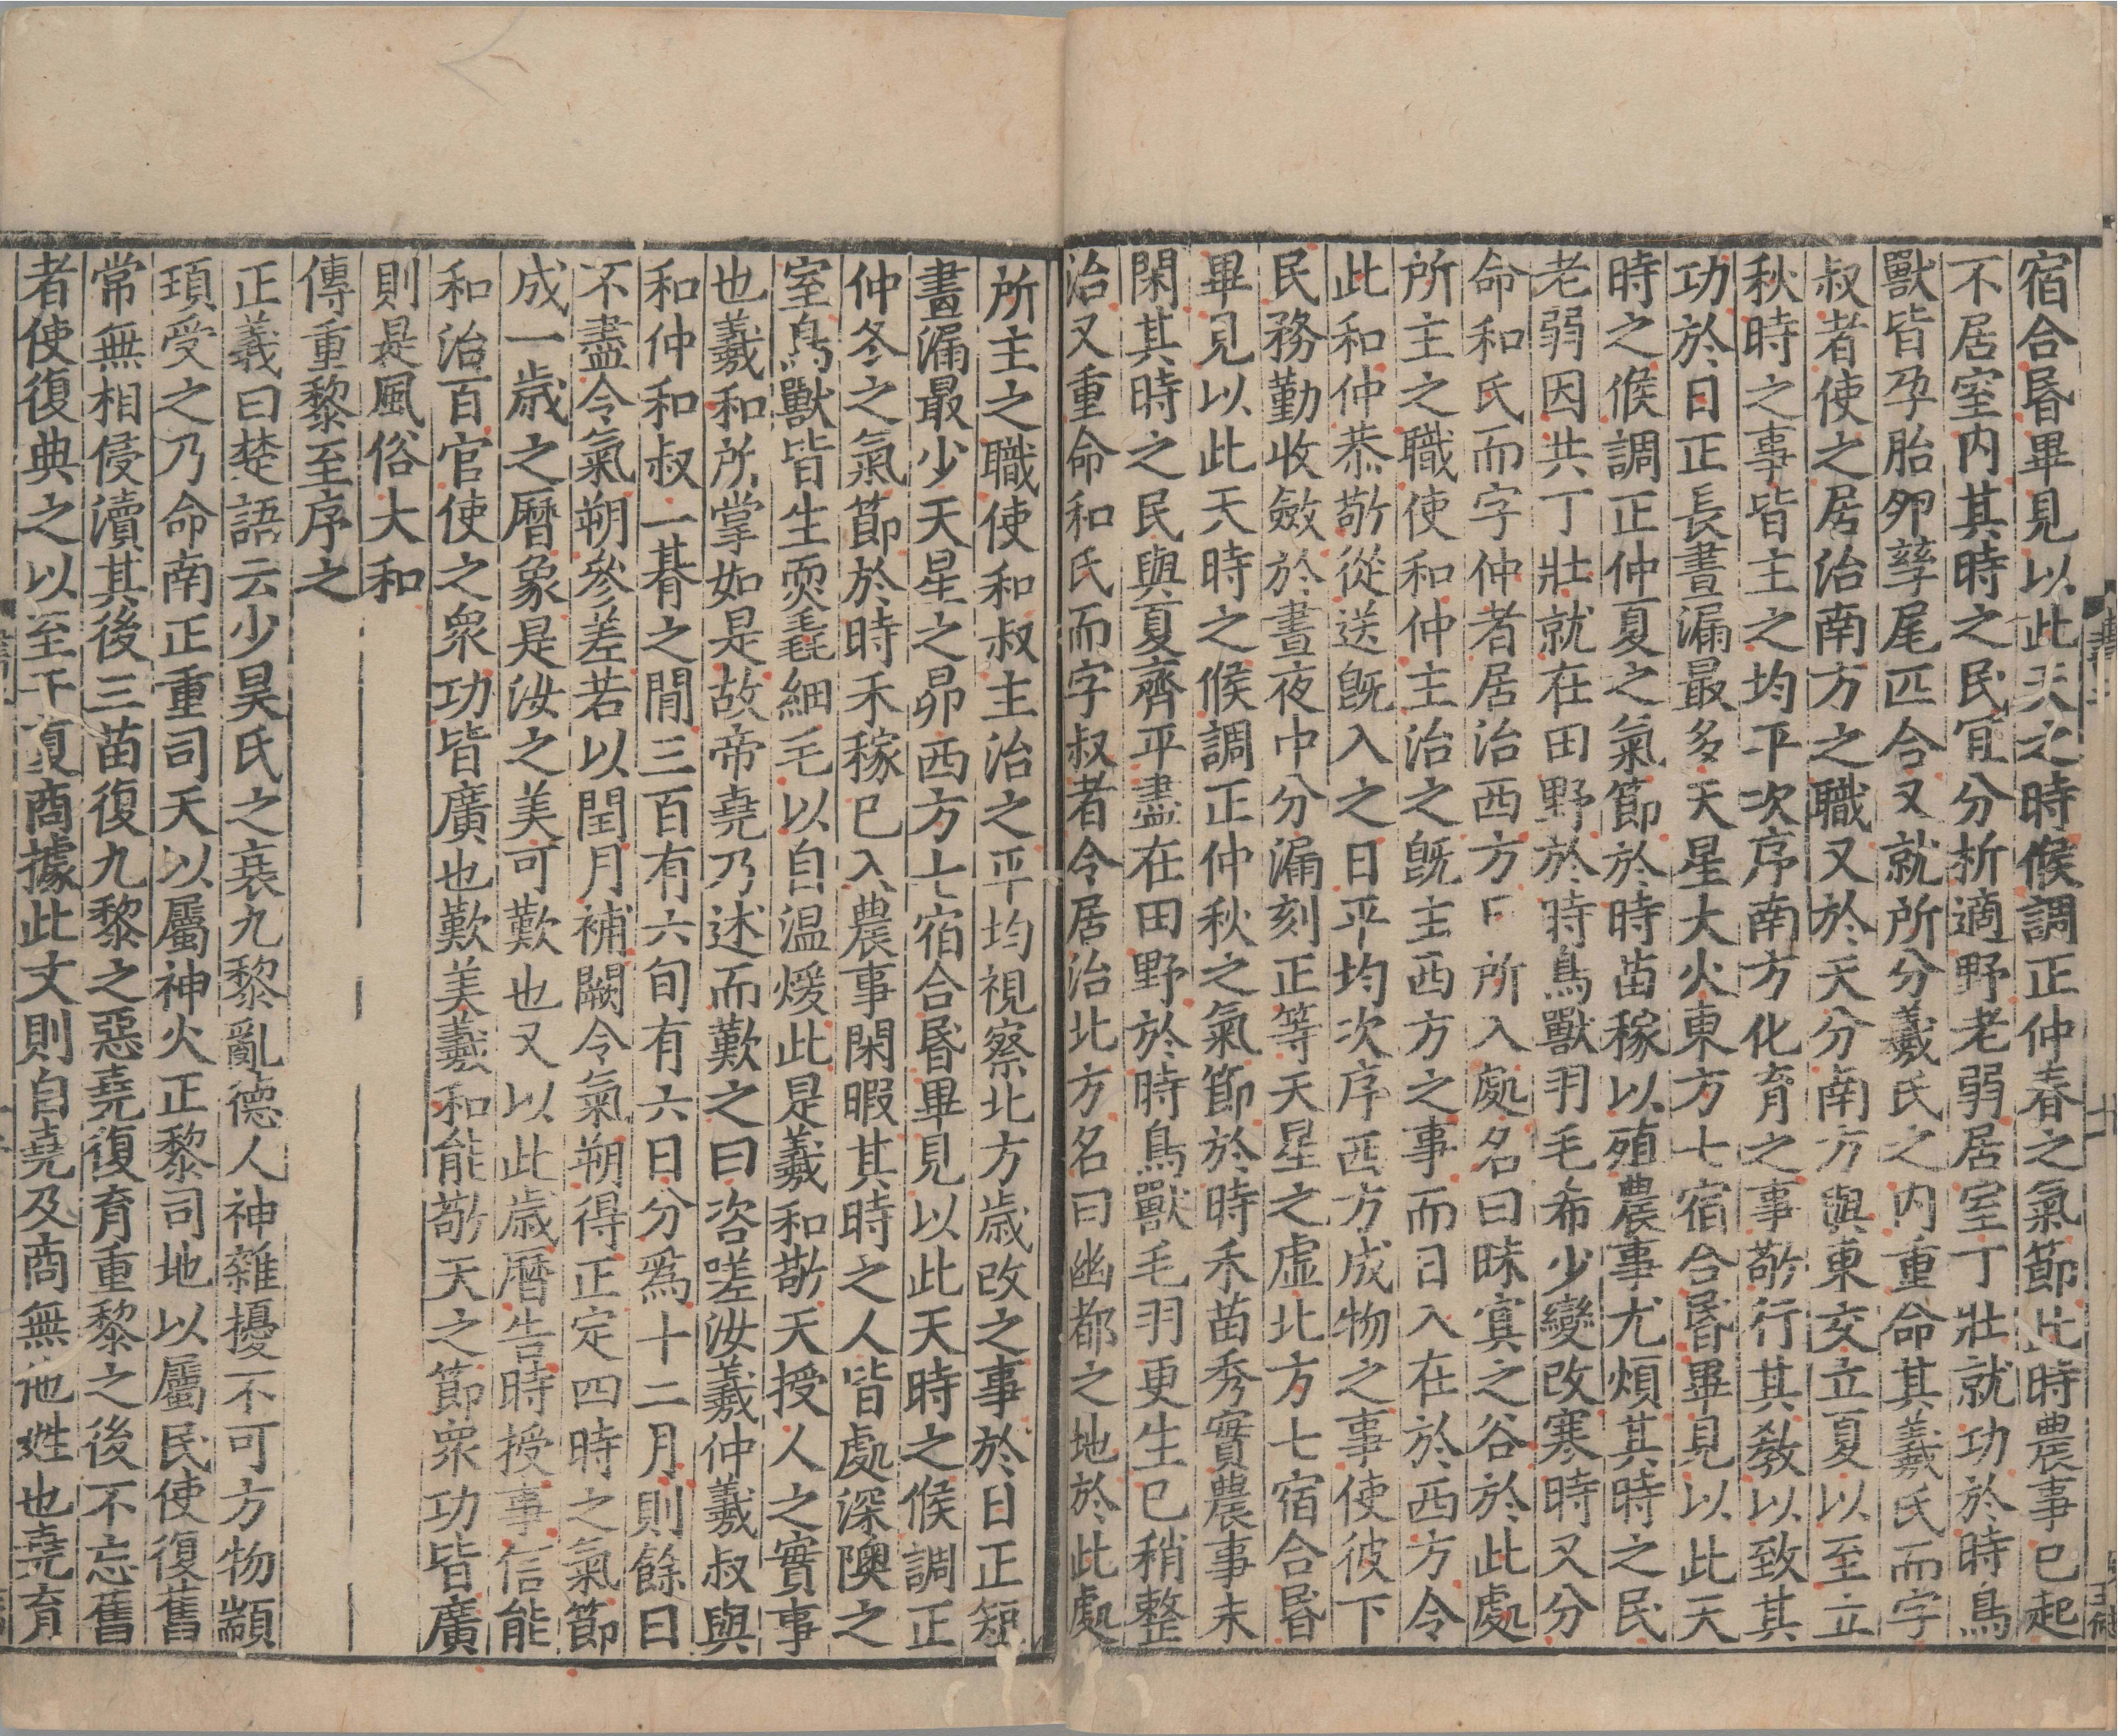 宿合昬畢見以此天之時候調正仲春之氣節此時農事已起
不居室内其時之民冝分析適野老弱居室丁壯就功於時鳥
獸皆孕胎夘孳尾匹合又就所分羲氏之内重命其羲氏而字
叔者使之居治南方之職又於天分南方與東交立夏以至立
秋時之事皆主之均平次序南方化育之事敬行其教以致其
功於日正長晝漏最多天星大火東方七宿合昬畢見以此天
時之候調正仲夏之氣節於時苗稼以殖農事尤煩其時之民
老弱因共丁壯就在田野於時鳥獸羽毛希少變改寒時又分
命和氏而字仲者居治西方日所入處名曰昧㝠之谷於此處
所主之職使和仲主治之旣主西方之事而日入在於西方令
此和仲恭敬從送旣入之日平均次序西方成物之事使彼下
民務勤收斂於晝夜中分漏刻正等天星之虛北方七宿合昬
畢見以此天時之候調正仲秋之氣節於時禾苗秀實農事未
閑其時之民與夏齊平盡在田野於時鳥獸毛羽更生已稍整
治又重命和氏而字叔者令居治北方名曰幽都之地於此處
所主之職使和叔主治之平均視察北方歲改之事於日正短
晝漏最少天星之昴西方七宿合昬畢見以此天時之候調正
仲冬之氣節於時禾稼已入農事閑暇其時之人皆處深隩之
室鳥獸皆生耎毳細毛以自温煖此是羲和敬天授人之實事
也羲和所掌如是故帝堯乃述而歎之曰咨嗟汝羲仲羲叔與
和仲和叔一朞之閒三百有六旬有六日分爲十二月則餘日
不盡令氣朔參差若以閏月補闕令氣朔得正定四時之氣節
成一歲之曆象是汝之美可歎也又以此歲曆告時授事信能
和治百官使之衆功皆廣也歎美羲和能敬天之節衆功皆廣
則是風俗大和
傳重黎至序之
正義曰楚語云少昊氏之衰九黎亂德人神雜擾不可方物顓
頊受之乃命南正重司天以屬神火正黎司地以屬民使復舊
常無相侵瀆其後三苗復九黎之惡堯復育重黎之後不忘舊
者使復典之以至于夏商據此文則自堯及商無他姓也堯育